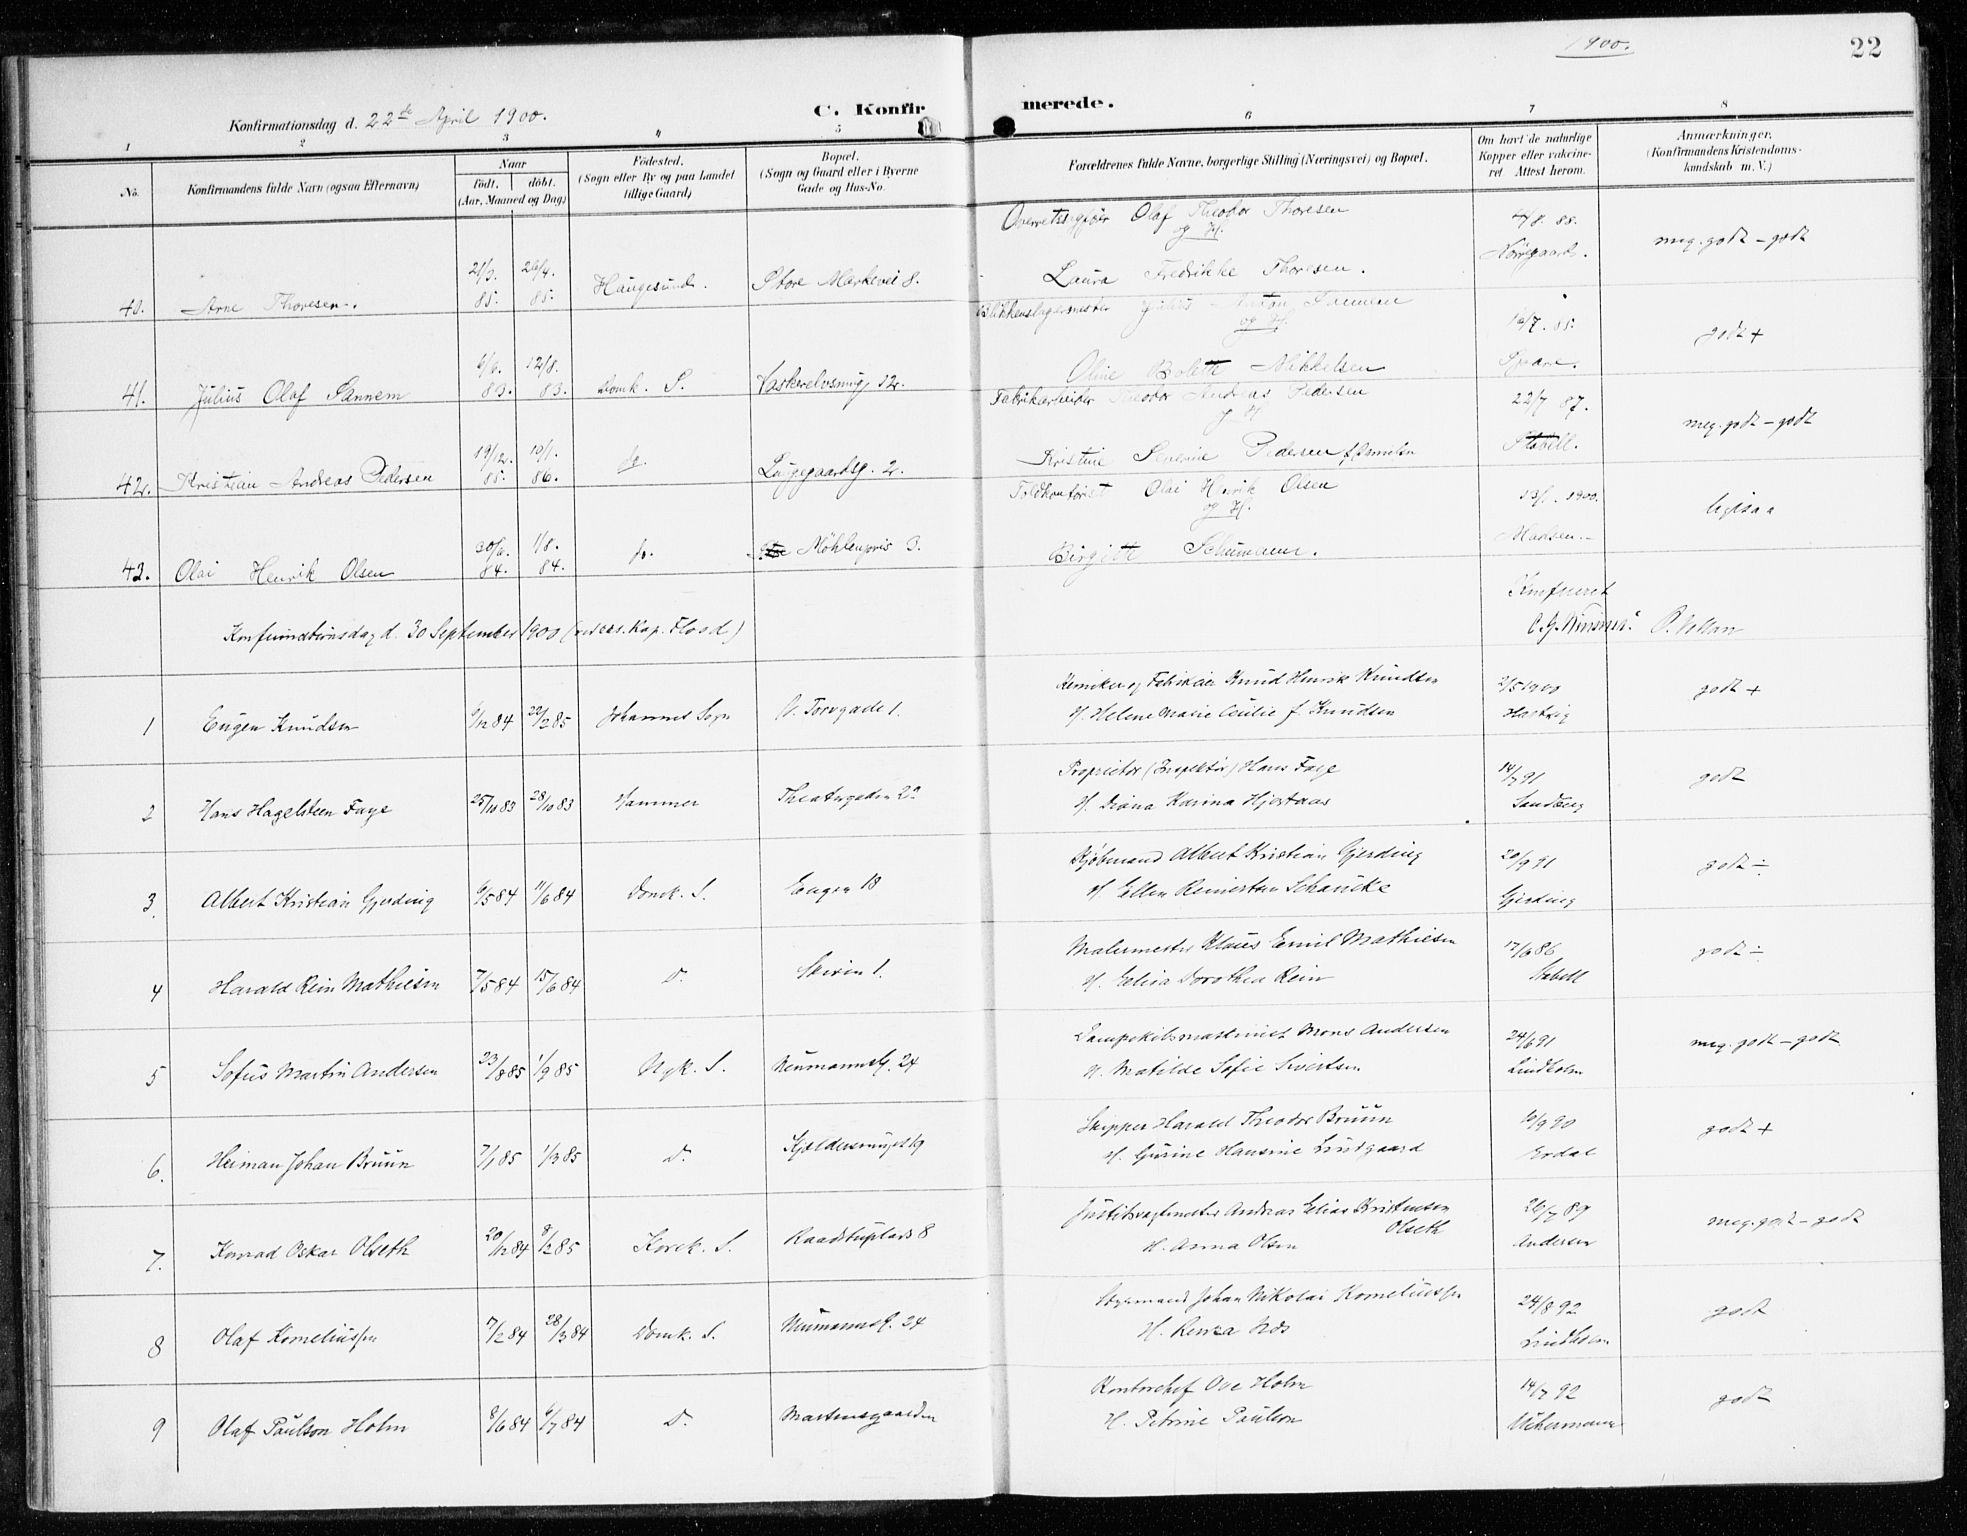 1900.
22
C. Konfirmerede.
Konfirmationsdag d. 22de April 1900.
1 2 3 4 5 6 7 8
No. Konfirmandens fulde Navn (ogsaa Efternavn) Naar født. døbt. (Aar, Maaned og Dag) Fødested. (Sogn eller By og paa Landet tillige Gaard) Bopæl. (Sogn og Gaard eller i Byerne Gade og Hus-No. Forældrenes fulde Navne, borgerlige Stilling (Næringsvei) og Bopæl. Om havt de naturlige Kopper eller vakcineret Attest herom. Anmærkninger. (Konfirmandens Kristendomskundskab m. V.)
Olaf Theodor Thoresen
og H.
40. Arne Thoresen. 21/3. 85. 26/4. 85. Haugesund. Store Markevei 8. Laura Fredrikke Thoresen. 88. Nørregaard. meg. godt - godt
Blikkenslagermester Anton Sannem
og H.
41. Julius Olaf Sannem 83. 12/8. 83. Domk. S. 12. Oline Bolette Mikkelsen 16/7. 85. godt +
Fabrikarbeider Theodor Andreas Pedersen
42. Kristian Andreas Pedersen 19/12. 85. 10/1. 86. do. Lyggegaardsg. 2. Kristine Severine Pedersen 22/7 87. Stabell. meg. godt - godt
Toldkontorist Olai Henrik Olsen
og H.
43. Olai Henrik Olsen 84. 1/8. 84. do. Møhlenpris 3. Birgitte Schumann. 13/1. 1900. Madsen. ligesaa
Konfirmationsdag d. 30 September 1900 (ved res. Kap. Flood)
Konfereret
1 Eugen Knudsen 6/12 84 22/2 85 Johannes Sogn V. Torvgade 1. Kemiker og Fabrikeier Knud Henrik Knudsen
H. Helene Marie Cecilie f. Knudsen 2/5 1900 Hartvig godt +
2 Hans Hagelsteen Faye 25/10 83 28/10 83 Hammer Theatergaden Proprietær (Inspektør) Hans Faye
H. Diana Karina Hjortaas 14/7 91 Sandberg godt
3. Albert Kristian Gjerding 6/5 84 11/6 84 Domk. S. Engen 18 Kjøbmand Albert Kristian Gjerding
H. Ellen Reinertsen Schancke 20/9 91 Gjerding godt ÷
4 Harald Rein Mathiesen 7/5 84 15/6 84 D. Skiven 1. Malermester Klaus Emil Mathiesen
H. Elisa Dorothea Rein 17/6 86 Stabell godt ÷
5 Sofus Martin Andersen 23/8 85 1/9 85 Nyk. S. Neumannsg. 24 Dampskibsmaskinist Mons Andersen
H. Matilde Sofie Sivertsen 24/6 91 Lindholm meg. godt - godt
6. Heiman Johan Bruun 7/1 85 1/3 85 D. Kjeldersmugsalm. Skipper Harald Theodor Bruun
H. Gurine Hansine Lindgaard 10/9 90 Erdal godt +
7. Konrad Oskar Olseth 20/12 84 8/2 85 Korsk. S. Raadstuplads 8 Justitsvagtmester Andreas Elias Kristensen Olseth
H. Anna Olsen 26/7 89 Andersen meg. godt - godt
8 Olaf Korneliussen 17/2 84 28/3 84 Domk. S. Neumannsg. 24 Styrmand Johan Nikolai Korneliussen
H. Renza 24/8 92 Lindholm godt
9 Olaf Paulson Holm 8/6 84 6/7 84 D. Martensgaarden Kontorchef Ove Holm
H. Petrine Paulson 14/7 92 Uchermann godt